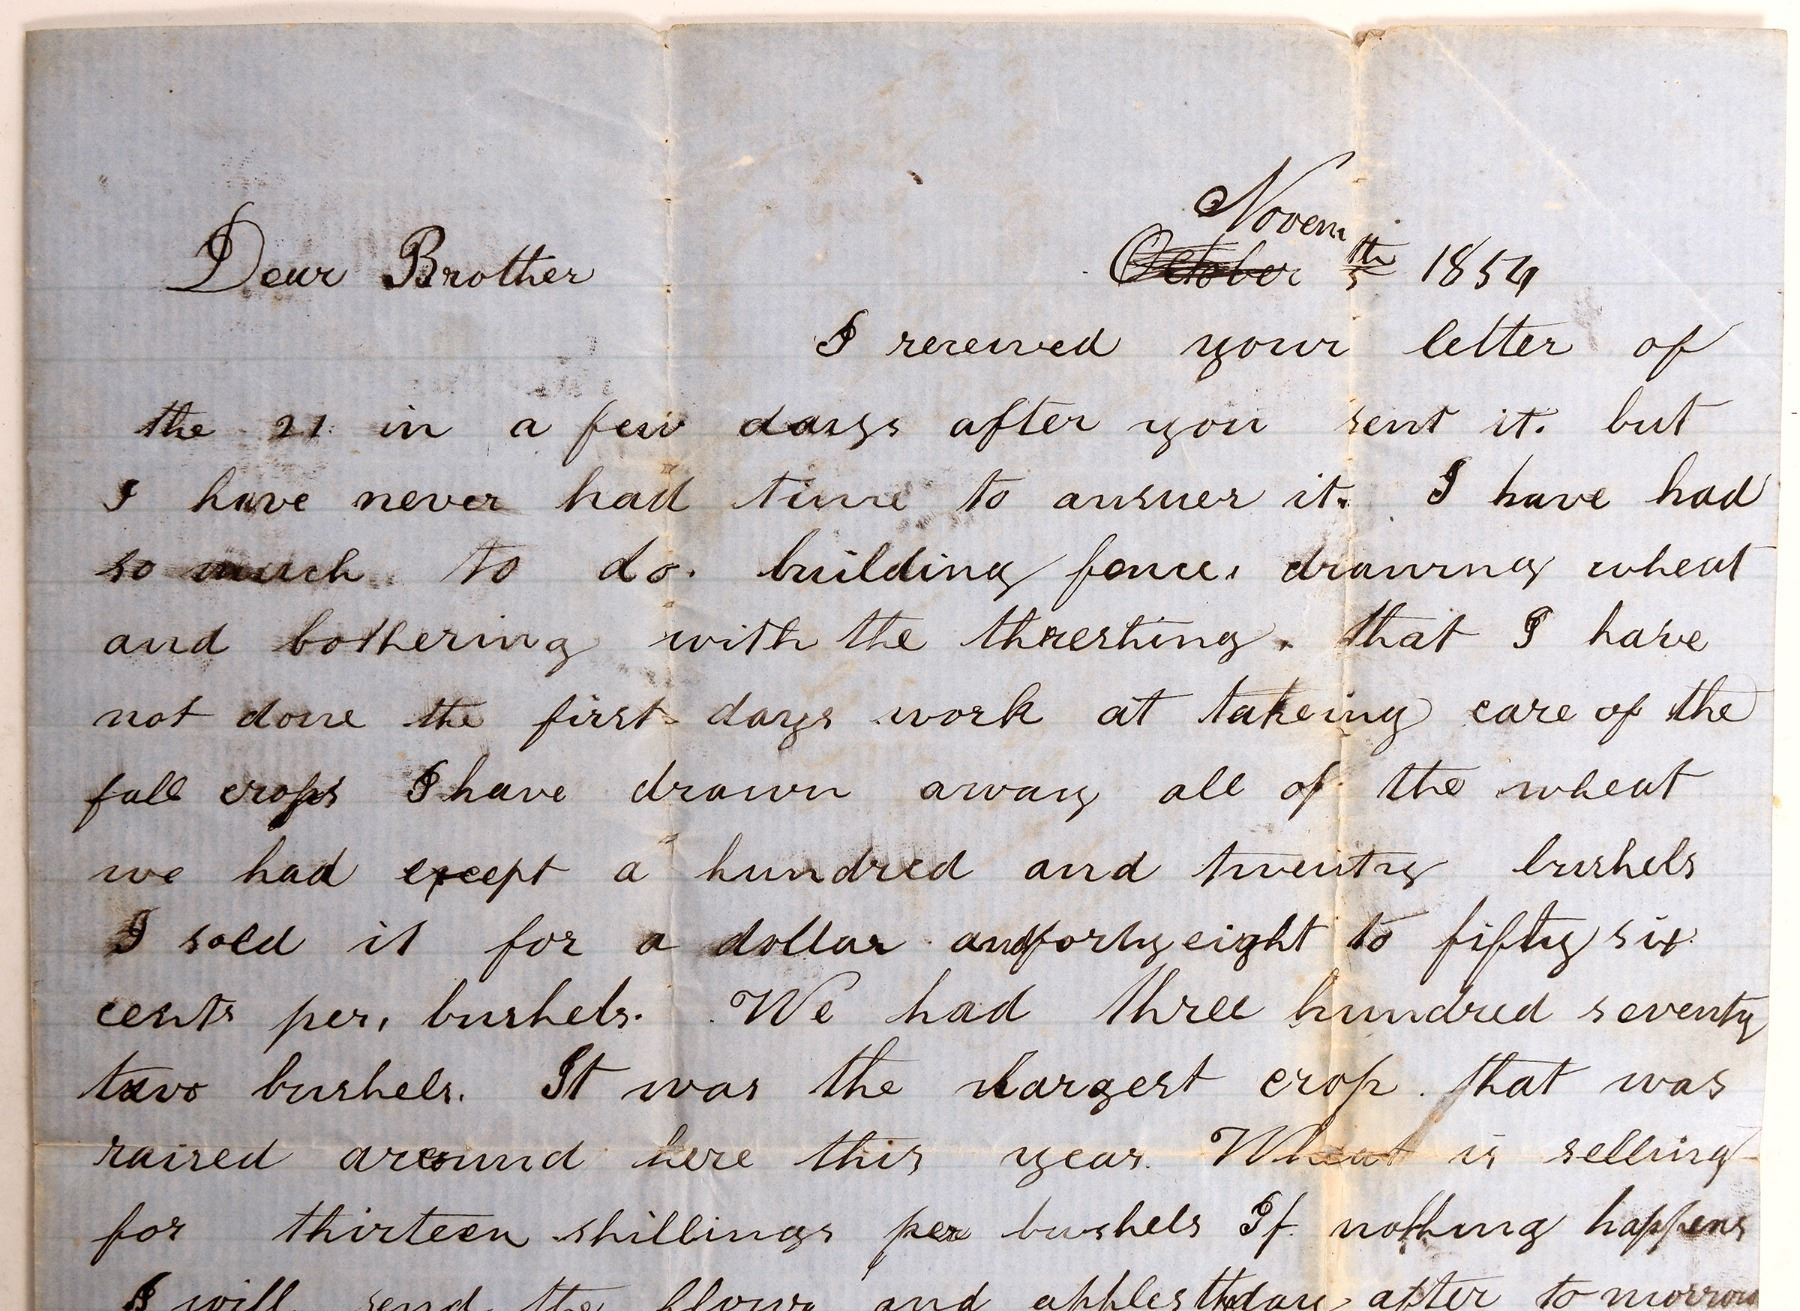 Novem
Dear Brother October 5th 1854
I received your letter of
the 21 in a few days after you sent it. but
I have never had time to answer it. I have had
so much to do. building fence, drawing wheat
and bothering with the threshing. that I have
not done the first days work at takeing care of the
fall crops I have drawn away all of the wheat
we had except a hundred and twenty bushels
I sold it for a dollar and forty eight to fifty six
cents per, bushels. We had three hundred seventy
two bushels. It was the largest crop that was
raised around here this year. Wheat is selling
for thirteen shillings per bushels If nothing happens
I will send the flour and apples day after tomorrow